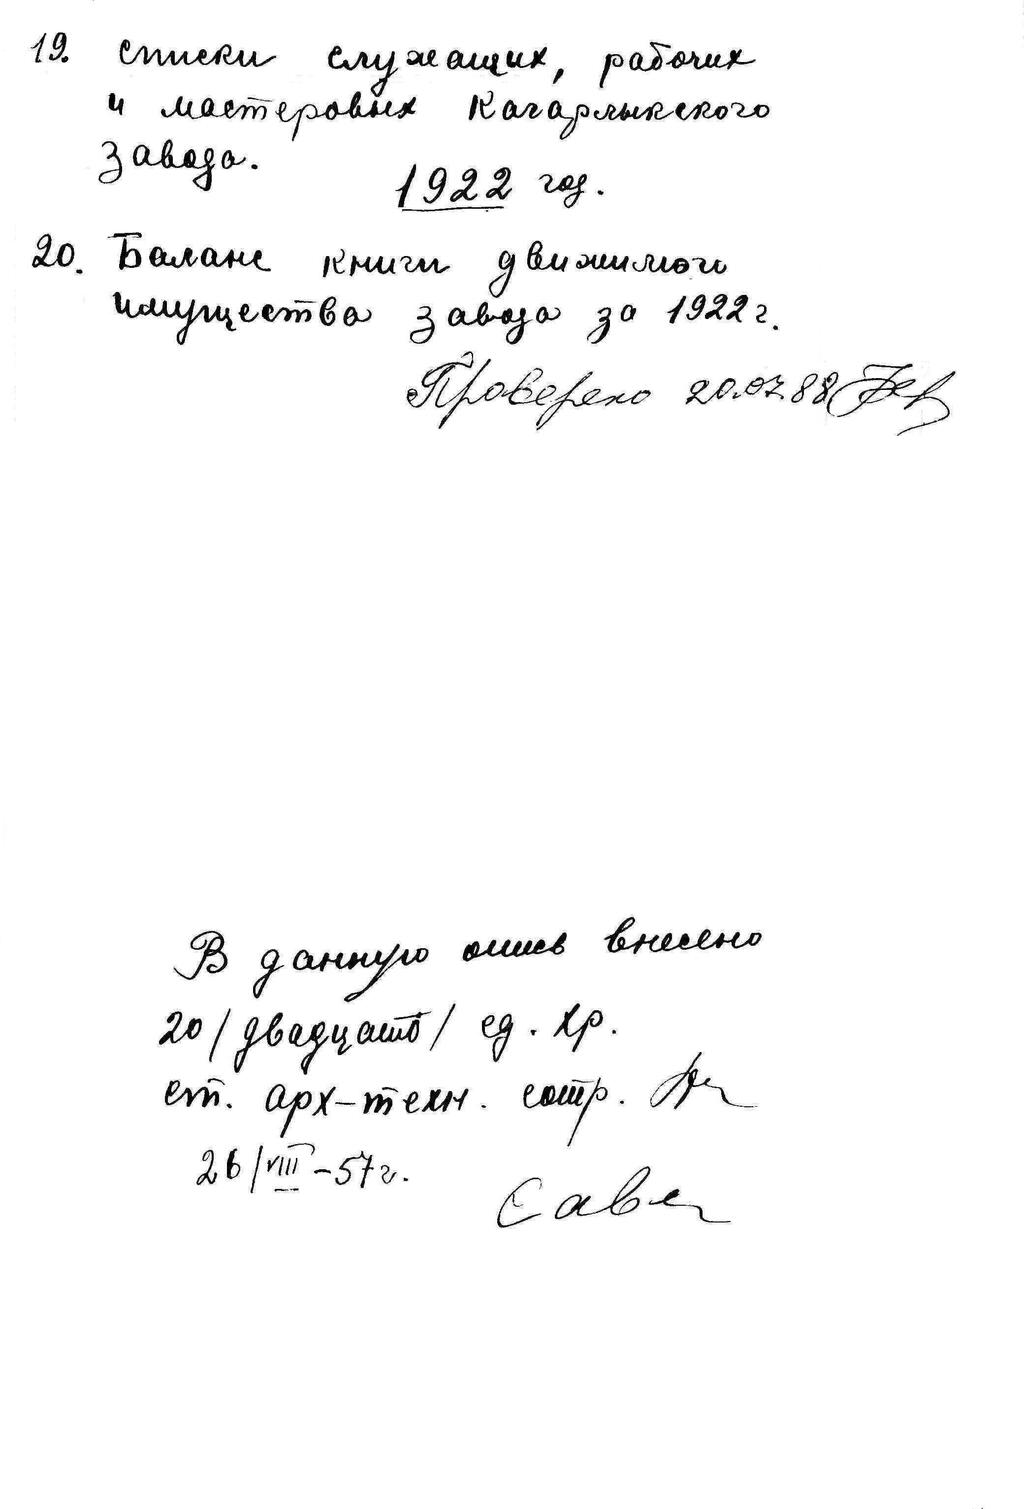 19. Списки служащих, рабочих
и мастеровых Кагарлыкского
завода.
1922 год.
20. Баланс книги движимого
имущества завода за 1922 г.
Проверено 20.07.88
В данную опись внесено
20 /двадцать/ ед. хр.
ст. арх-техн. сотр.
26/VIII-57г.